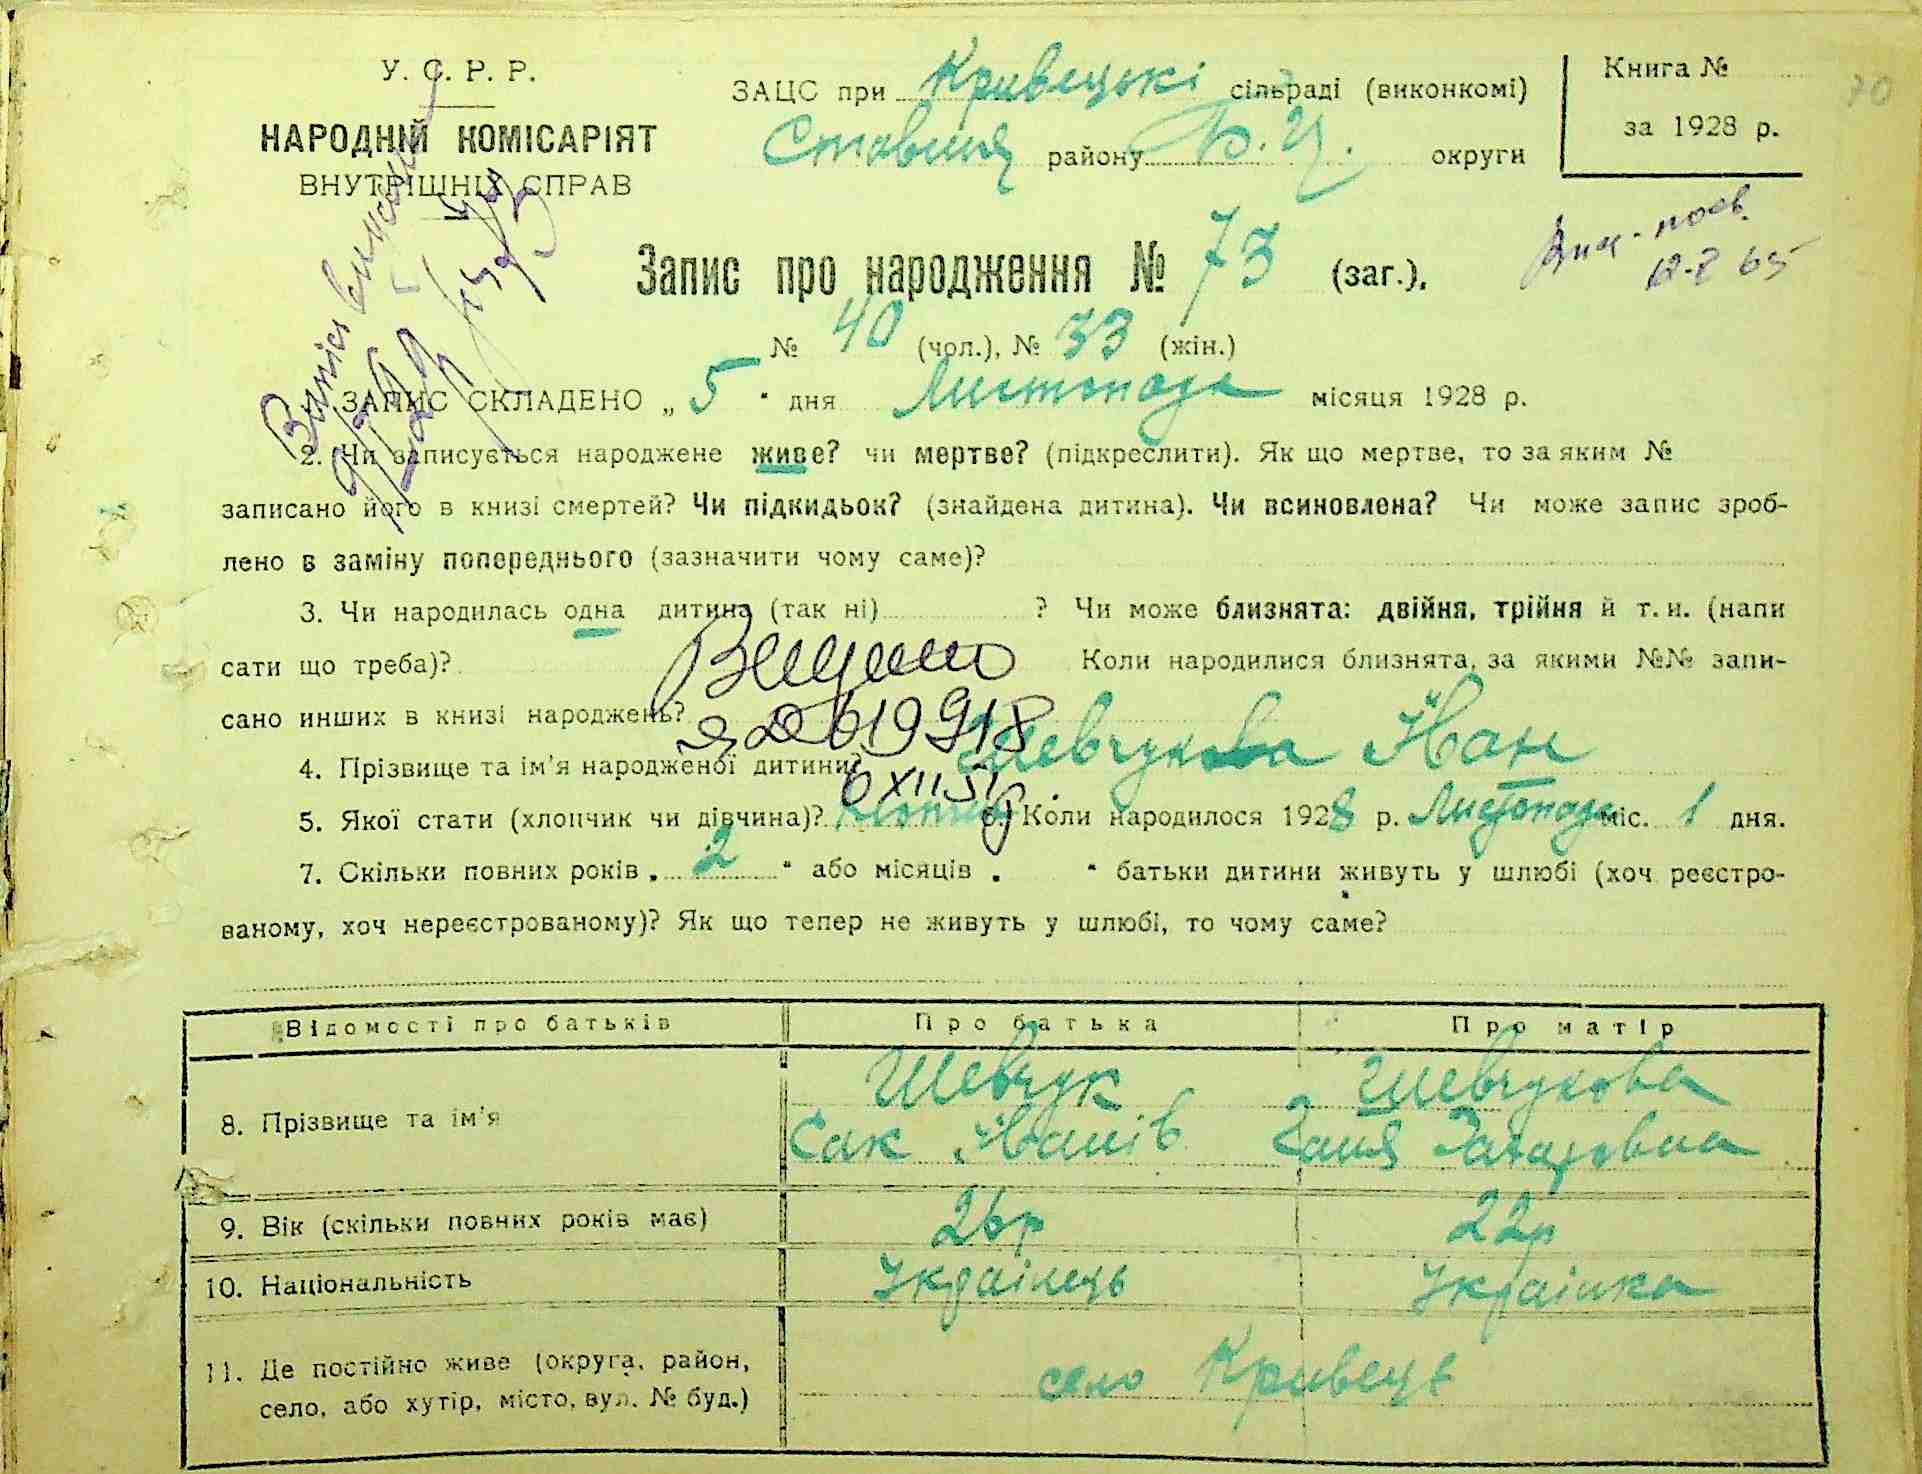 У. С. Р. Р.
НАРОДНІЙ КОМІСАРІЯТ
ВНУТРІШНІХ СПРАВ
ЗАЦС при Кривецькі сільраді (виконкомі)
Ставищ району Б. Ц. округи
Книга №
за 1928 р.
70
Запис про народження № 73 (заг.).
№ 40 (чол.), № 33 (жін.)
ЗАПИС СКЛАДЕНО „ 5 " дня Листопада місяця 1928 р.
2. Чи записується народжене живе? чи мертве? (підкреслити). Як що мертве, то за яким №
записано його в книзі смертей? Чи підкидьок? (знайдена дитина). Чи всиновлена? Чи може запис зроб-
лено в заміну попереднього (зазначити чому саме)?
3. Чи народилась одна дитина (так ні) ? Чи може близнята: двійня, трійня й т. и. (напи
сати що треба)? Коли народилися близнята, за якими №№ запи-
сано инших в книзі народжень?
019918
4. Прізвище та ім'я народженої дитини? Шевчукова Іван
XII 51
5. Якої стати (хлопчик чи дівчина)? Хлопчик 6. Коли народилося 1928 р. Листопада міс. 1 дня.
7. Скільки повних років „ 2 " або місяців „ " батьки дитини живуть у шлюбі (хоч реєстро-
ваному, хоч нереєстрованому)? Як що тепер не живуть у шлюбі, то чому саме?
Відомості про батьків Про батька Про матір
8. Прізвище та ім'я
Шевчук Шевчукова
Сак Іванів Ганя Захаровна
9. Вік (скільки повних років має) 26р 22р
10. Національність Українець Українка
11. Де постійно живе (округа, район,
село, або хутір, місто, вул. № буд.)
село Кривець